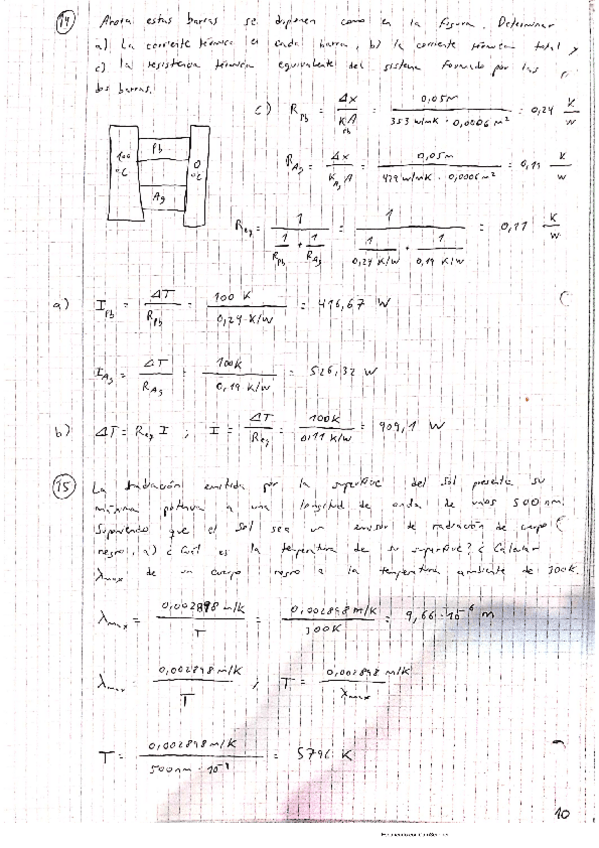 14) Ahora estas barras se disponen como en la figura. Determinar
a) La corriente térmica en cada barra, b) la corriente térmica total y
c) la resistencia térmica equivalente del sistema formado por las
dos barras.
c) R_Pb = Δx / (K_Pb A) = 0,05m / (353 w/mK · 0,0006 m²) = 0,24 K/W
100 °C Pb 0 °C
Ag
R_Ag = Δx / (K_Ag A) = 0,05m / (429 w/mK · 0,0006 m²) = 0,19 K/W
R_eq = 1 / (1/R_Pb + 1/R_Ag) = 1 / (1/(0,24 K/W) + 1/(0,19 K/W)) = 0,11 K/W
a) I_Pb = ΔT / R_Pb = 100 K / (0,24 K/W) = 416,67 W
I_Ag = ΔT / R_Ag = 100K / (0,19 K/W) = 526,32 W
b) ΔT = R_eq I ; I = ΔT / R_eq = 100K / (0,11 K/W) = 909,1 W
15) La radiación emitida por la superficie del sol presenta su
máxima potencia a una longitud de onda de unos 500 nm.
Suponiendo que el sol sea un emisor de radiación de cuerpo
negro, a) ¿Cuál es la temperatura de su superficie? ¿ Calcular
λmax de un cuerpo negro a la temperatura ambiente de 300K.
λmax = 0,002898 m/K / T = 0,002898 m/K / 300K = 9,66 · 10⁻⁶ m
λmax 0,002898 m/K / T ; T = 0,002898 m/K / λmax
T = 0,002898 m/K / (500nm · 10⁻⁹) = 5796 K
10